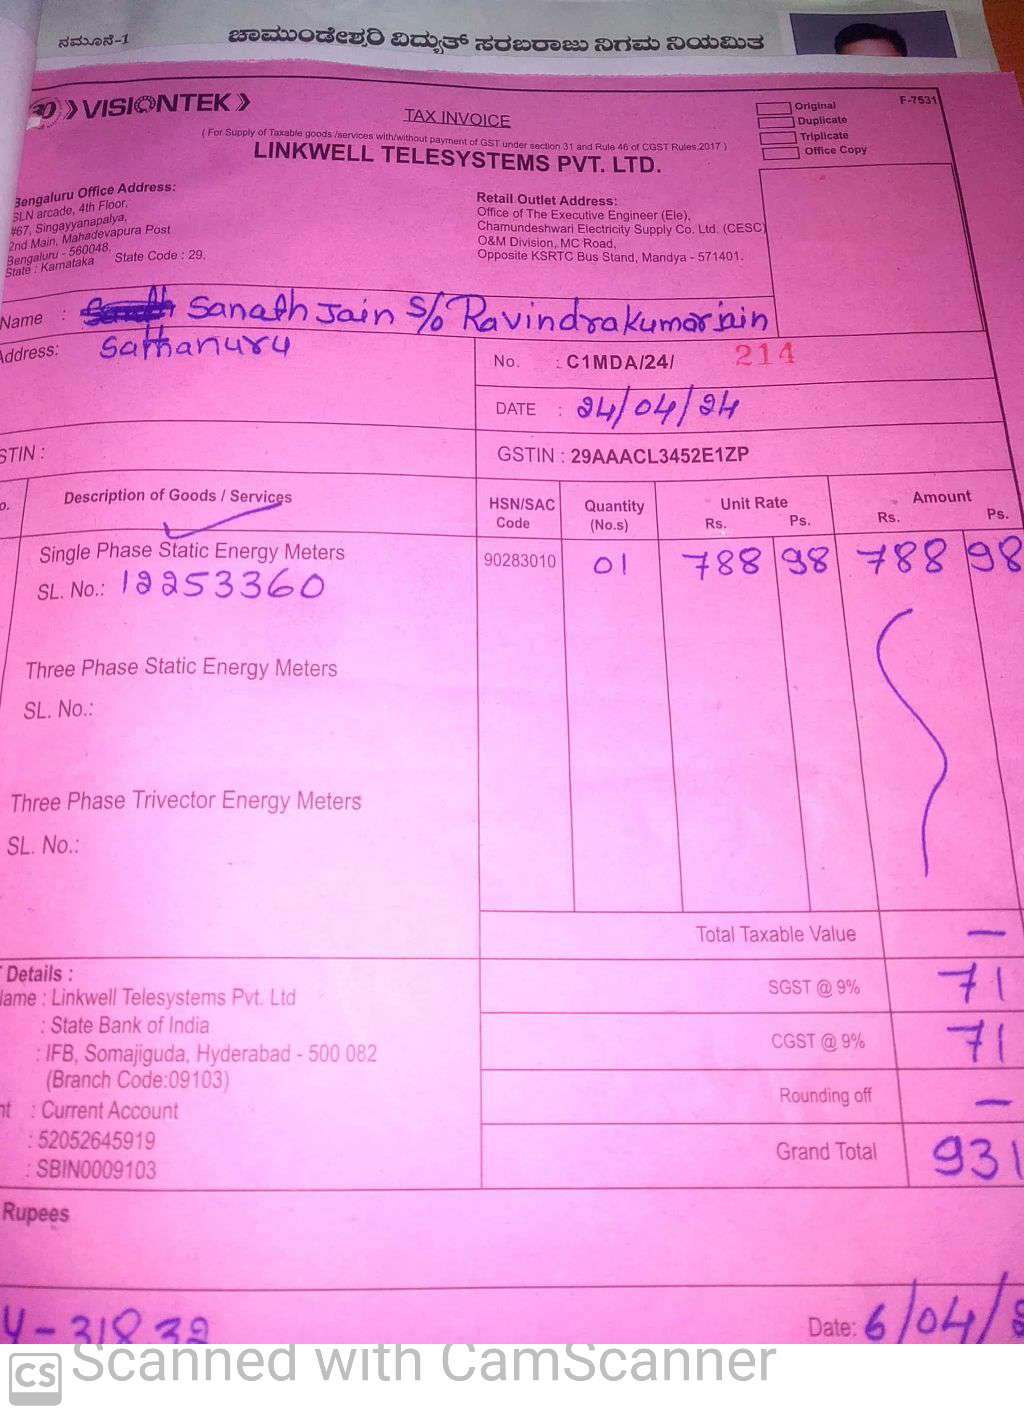 ನಮೂನೆ-1 ಚಾಮುಂಡೇಶ್ವರಿ ವಿದ್ಯುತ್ ಸರಬರಾಜು ನಿಗಮ ನಿಯಮಿತ
30 VISIONTEK
TAX INVOICE
( For Supply of Taxable goods /services with/without payment of GST under section 31 and Rule 46 of CGST Rules,2017 )
LINKWELL TELESYSTEMS PVT. LTD.
Original
Duplicate
Triplicate
Office Copy
F-7531
Bengaluru Office Address:
SLN arcade, 4th Floor,
#67, Singayyanapalya,
2nd Main, Mahadevapura Post
Bengaluru - 560048,
State : Karnataka State Code : 29.
Retail Outlet Address:
Office of The Executive Engineer (Ele),
Chamundeshwari Electricity Supply Co. Ltd. (CESC)
O&M Division, MC Road,
Opposite KSRTC Bus Stand, Mandya - 571401.
Name : Sanath Jain S/o Ravindrakumar jain
Address: Sathanuru
No. : C1MDA/24/ 214
DATE : 24/04/24
STIN :
GSTIN : 29AAACL3452E1ZP
o. Description of Goods / Services HSN/SAC Code Quantity (No.s) Unit Rate Rs. Ps. Amount Rs. Ps.
Single Phase Static Energy Meters 90283010 01 788 98 788 98
SL. No.: 12253360
Three Phase Static Energy Meters
SL. No.:
Three Phase Trivector Energy Meters
SL. No.:
Total Taxable Value —
SGST @ 9% 71
CGST @ 9% 71
Rounding off —
Grand Total 931
Details :
lame : Linkwell Telesystems Pvt. Ltd
: State Bank of India
: IFB, Somajiguda, Hyderabad - 500 082
(Branch Code:09103)
nt : Current Account
: 52052645919
: SBIN0009103
Rupees
4-31832
Date: 6/04/2
CS Scanned with CamScanner